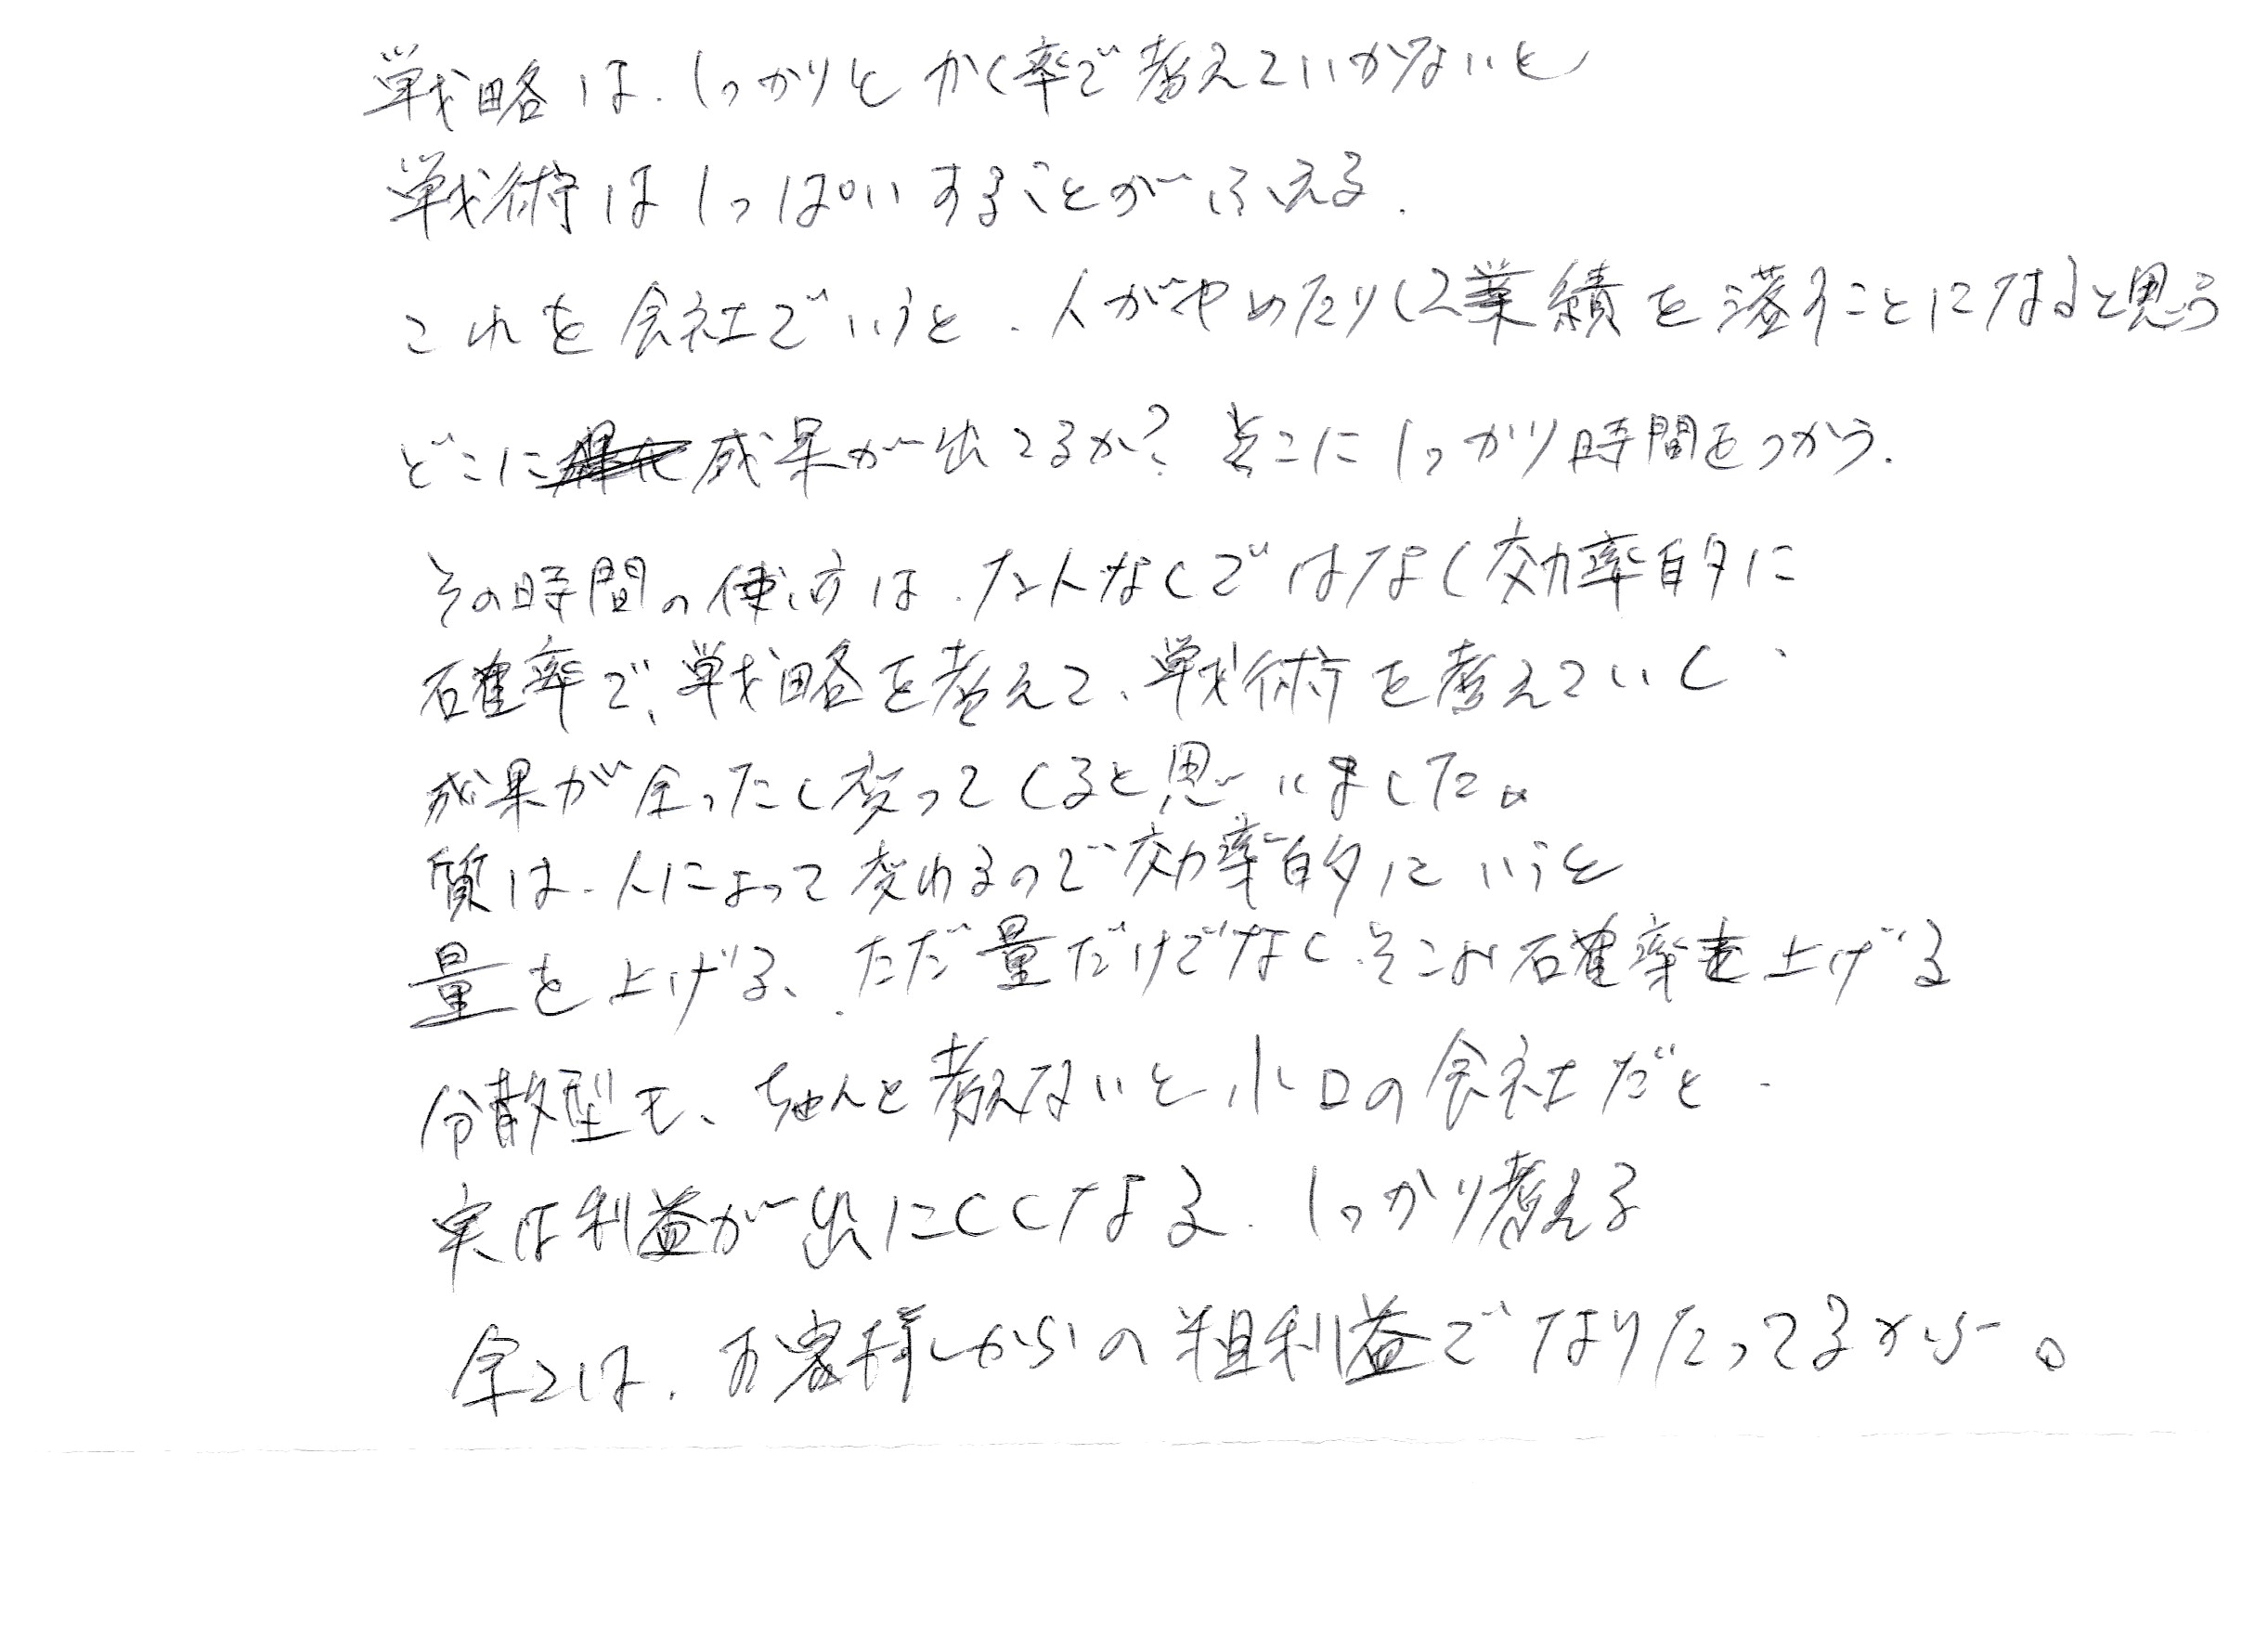 戦略は、しっかりとかく率で考えていかないと
戦術はしっぱいすることがふえる.
これを会社でいうと、人がやめたりして業績を落すことになると思う
どこに成果が出てるか? そこにしっかり時間をつかう.
その時間の使い方は、なんなくではなく効率的に
確率で、戦略を考えて、戦術を考えていく
成果が全ったく変ってくると思いました。
質は、人によって変わるので効率的にいうと
量を上げる、ただ量だけでなく、そこの確率を上げる
分散型も、ちゃんと考えないと小口の会社だと
実は利益が出にくくなる、しっかり考える
全ては、お客様からの粗利益でなりたってるから。